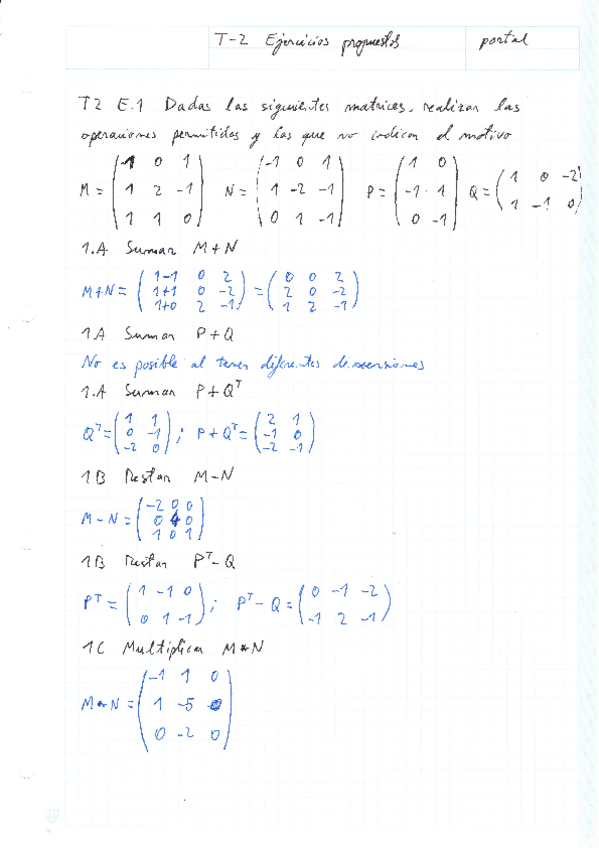 T-2 Ejercicios propuestos portal
T2 E.1 Dadas las siguientes matrices, realizar las
operaciones permitidas y las que no indicar el motivo
M = ( -1 0 1 / 1 2 -1 / 1 1 0 ) N = ( -1 0 1 / 1 -2 -1 / 0 1 -1 ) P = ( 1 0 / -1 1 / 0 -1 ) Q = ( 1 0 -2 / 1 -1 0 )
1.A Sumar M+N
M+N = ( 1-1 0 2 / 1+1 0 -2 / 1+0 2 -1 ) = ( 0 0 2 / 2 0 -2 / 1 2 -1 )
1A Sumar P+Q
No es posible al tener diferentes dimensiones
1.A Sumar P+Q^T
Q^T = ( 1 1 / 0 -1 / -2 0 ) ; P+Q^T = ( 2 1 / -1 0 / -2 -1 )
1B Restar M-N
M-N = ( -2 0 0 / 0 4 0 / 1 0 1 )
1B Restar P^T-Q
P^T = ( 1 -1 0 / 0 1 -1 ) ; P^T-Q = ( 0 -1 -2 / -1 2 -1 )
1C Multiplicar M*N
M*N = ( -1 1 0 / 1 -5 0 / 0 -2 0 )